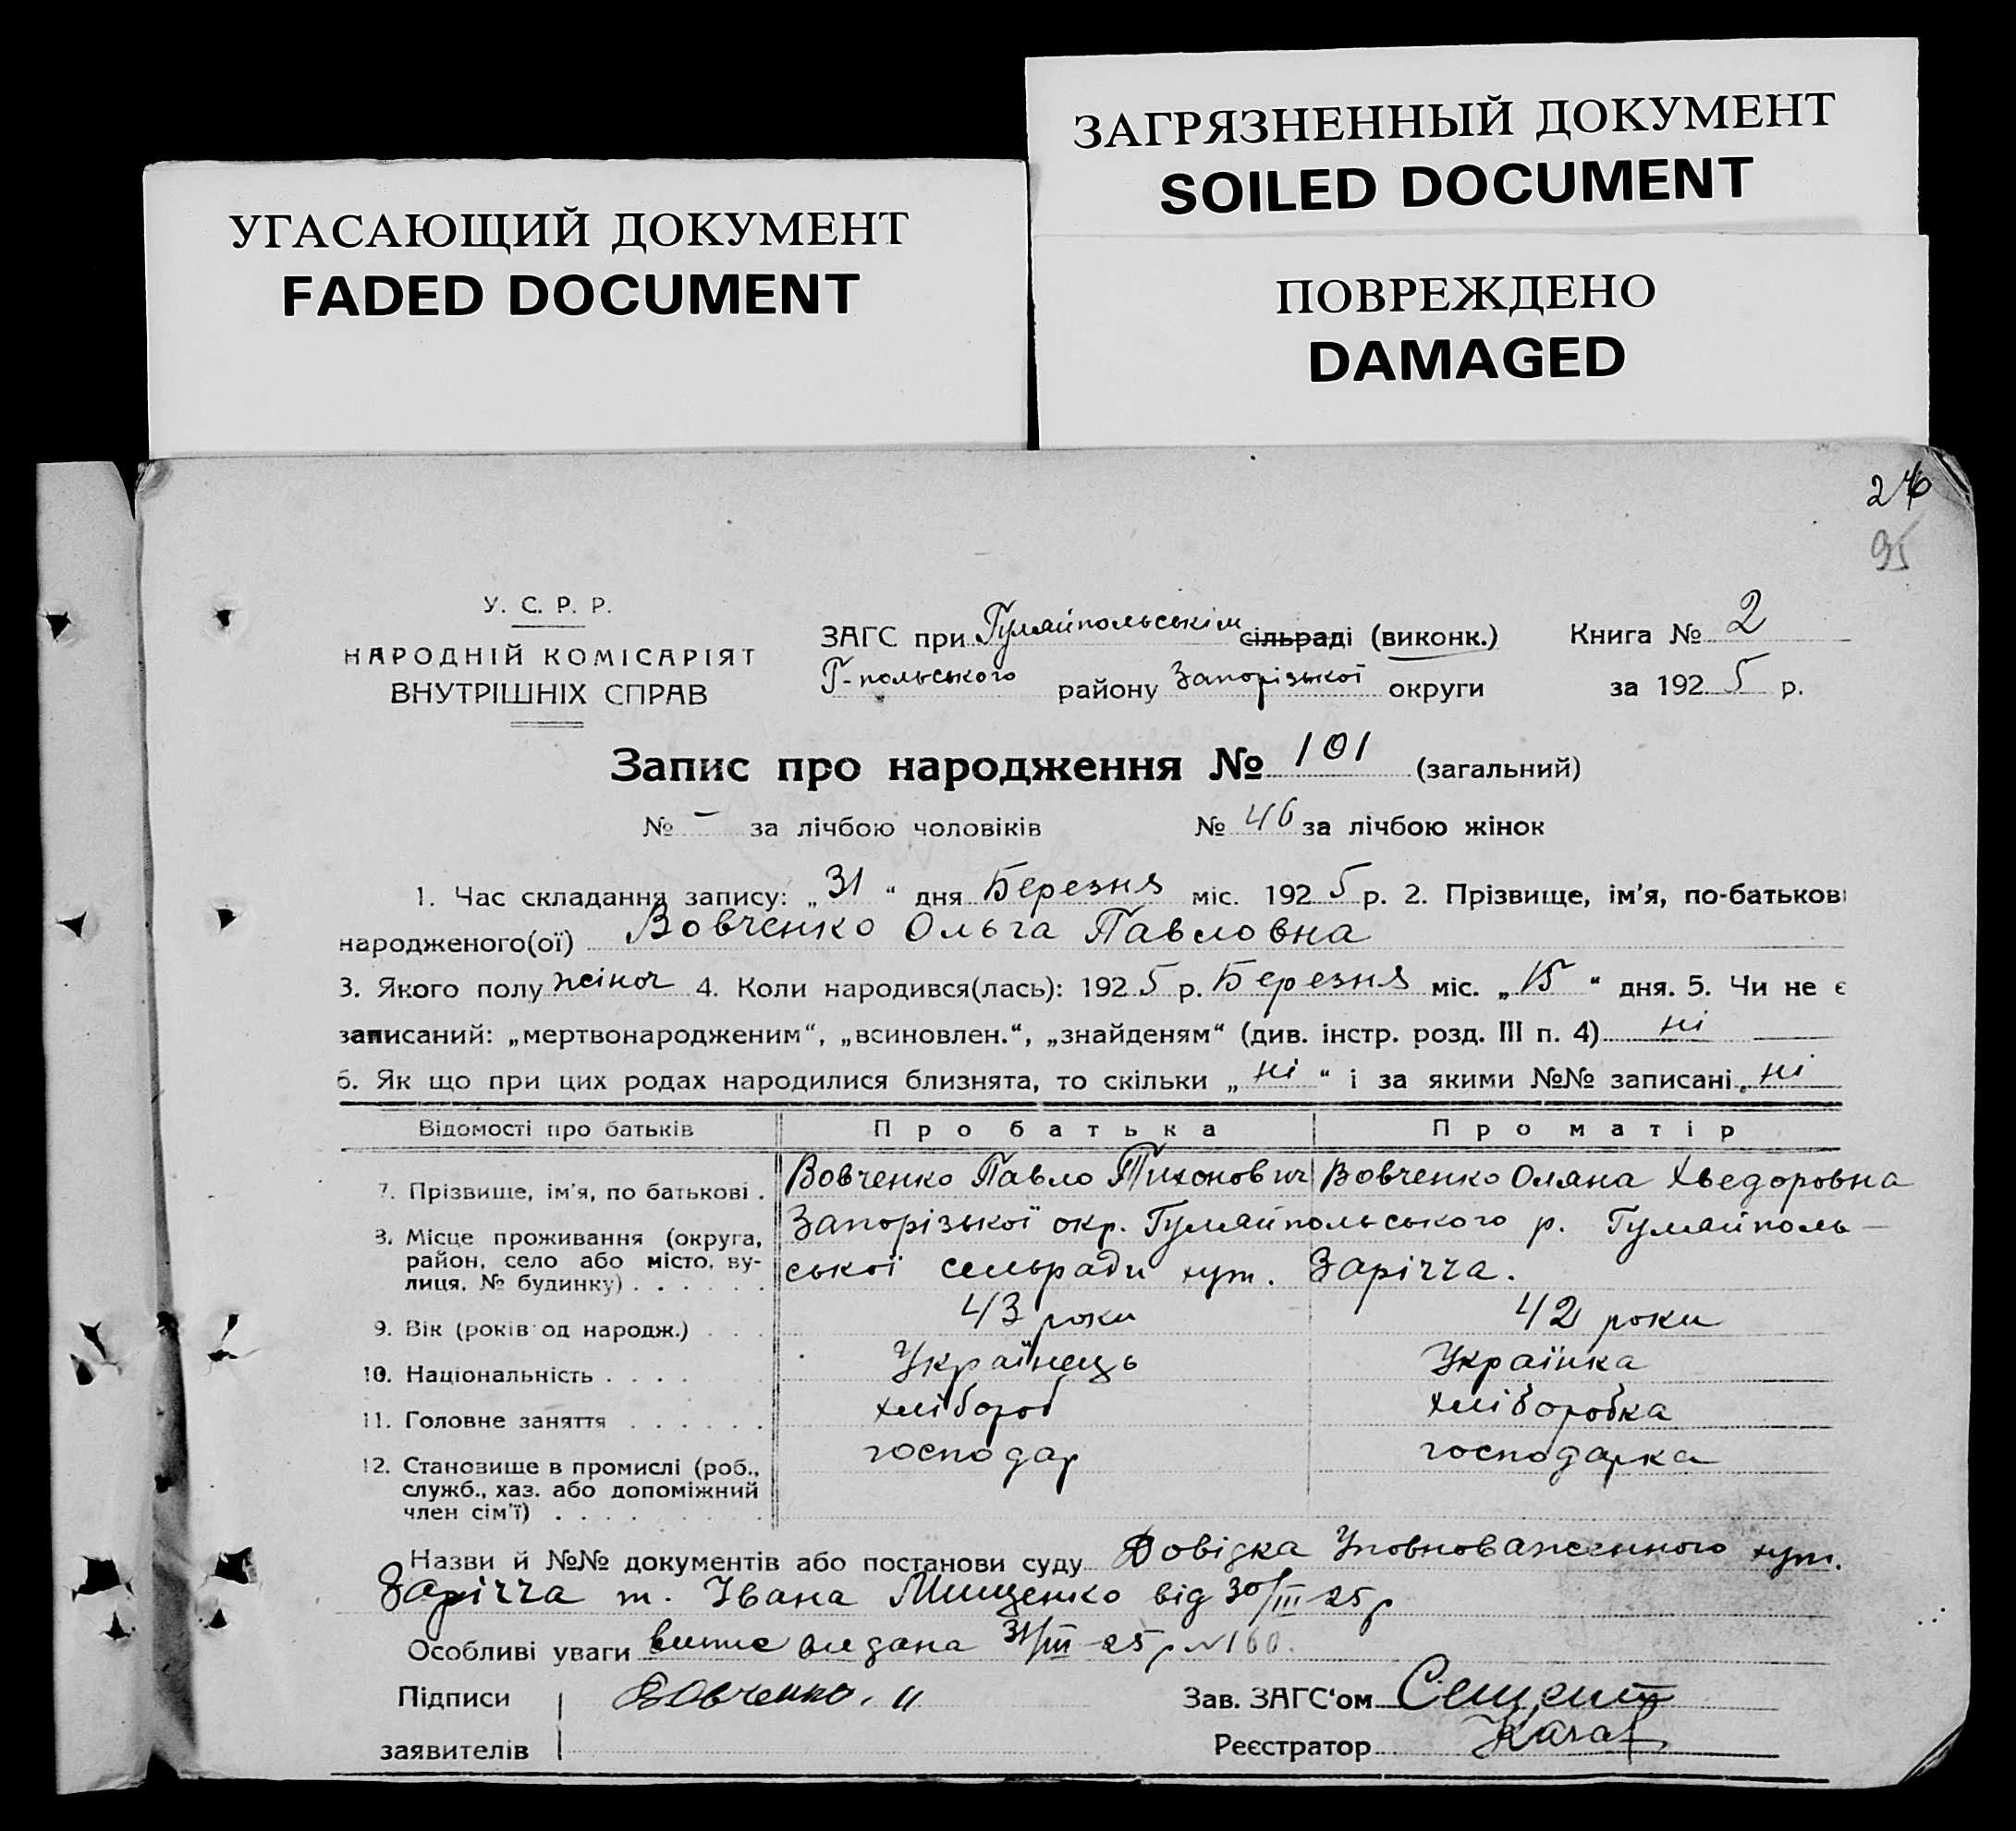 ЗАГРЯЗНЕННЫЙ ДОКУМЕНТ
SOILED DOCUMENT
УГАСАЮЩИЙ ДОКУМЕНТ
FADED DOCUMENT
ПОВРЕЖДЕНО
DAMAGED
95
У. С. Р. Р.
НАРОДНІЙ КОМІСАРІЯТ
ВНУТРІШНІХ СПРАВ
ЗАГС при Гуляйпольськім сільраді (виконк.) Книга № 2
Г-польського району Запорізької округи за 1925 р.
Запис про народження № 101 (загальний)
№ - за лічбою чоловіків № 46 за лічбою жінок
1. Час складання запису: „31“ дня Березня міс. 1925 р. 2. Прізвище, ім'я, по-батькові
народженого(ої) Вовченко Ольга Павловна
3. Якого полу жіноч 4. Коли народився(лась): 1925 р. Березня міс. „15“ дня. 5. Чи не є
записаний: „мертвонародженим“, „всиновлен.“, „знайденям“ (див. інстр. розд. III п. 4) ні
6. Як що при цих родах народилися близнята, то скільки „ні“ і за якими №№ записані „ні
Відомості про батьків Про батька Про матір
7. Прізвище, ім'я, по батькові . Вовченко Павло Тихонович Вовченко Оляна Хведоровна
8. Місце проживання (округа, район, село або місто, вулиця, № будинку) . . . . . . Запорізької окр. Гуляйпольського р. Гуляйполь-
ської сельради хут. Заріччя.
9. Вік (років од народж.) . . . 43 роки 42 роки
10. Національність . . . . Українець Українка
11. Головне заняття . . . . . . хлібороб хліборобка
12. Становище в промислі (роб., служб., хаз. або допоміжний член сім'ї) . . . . . . . . господар господарка
Назви й №№ документів або постанови суду Довідка Уповноваженного хут.
Заріччя т. Івана Мищенко від 30/III 25 р
Особливі уваги видана 31/III-25 р №160.
Підписи Вовченко. Зав. ЗАГС'ом
заявителів Реєстратор